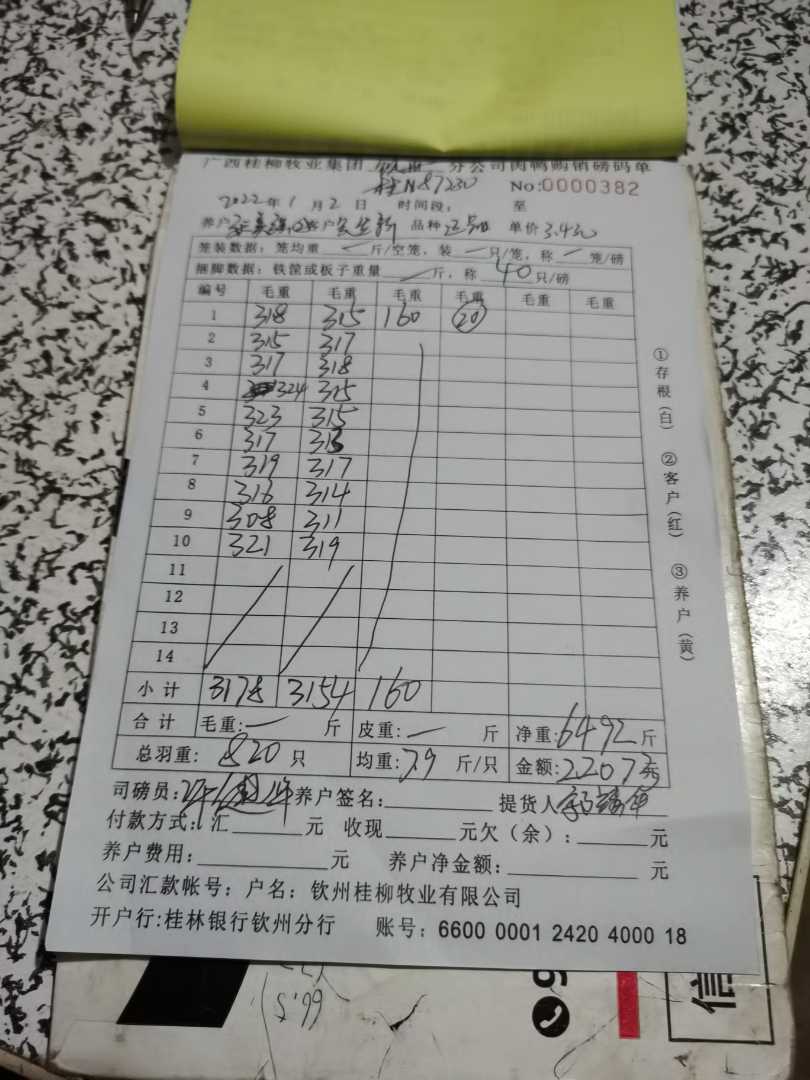 广西桂柳牧业集团 钦重一 分公司肉鸭购销磅码单
桂N87230 No:0000382
2022年1月2日 时间段: 至
养户: 客户 品种 单价 3.4元
笼装数据: 笼均重 — 斤/空笼, 装 — 只/笼, 称 — 笼/磅
捆脚数据: 铁筐或板子重量 — 斤, 称 40 只/磅
编号 毛重 毛重 毛重 毛重 毛重 毛重
1 318 315 160 20
2 315 317
3 317 318
4 324 315
5 323 315
6 317 313
7 319 317
8 316 314
9 308 311
10 321 319
11
12
13
14
小计 3178 3154 160
合计 毛重: — 斤 皮重: — 斤 净重: 6492 斤
总羽重: 820 只 均重: 7.9 斤/只 金额: 22073
司磅员: 养户签名: 提货人
付款方式: 汇 元 收现 元欠(余): 元
养户费用: 元 养户净金额: 元
公司汇款帐号: 户名: 钦州桂柳牧业有限公司
开户行:桂林银行钦州分行 账号: 6600 0001 2420 4000 18
①存根(白) ②客户(红) ③养户(黄)
信